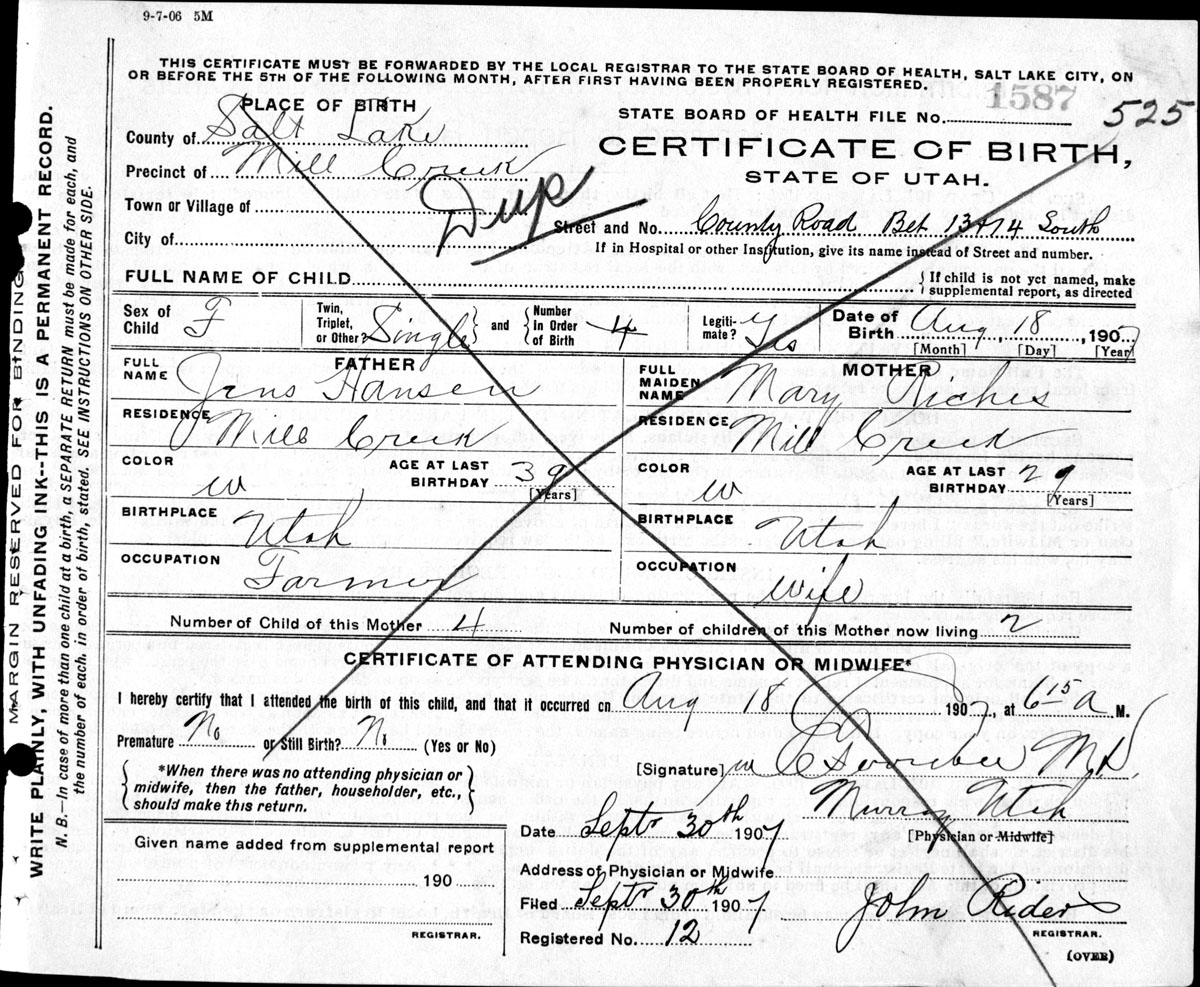 9-7-06 5M
THIS CERTIFICATE MUST BE FORWARDED BY THE LOCAL REGISTRAR TO THE STATE BOARD OF HEALTH, SALT LAKE CITY, ON
OR BEFORE THE 5TH OF THE FOLLOWING MONTH, AFTER FIRST HAVING BEEN PROPERLY REGISTERED.
PLACE OF BIRTH
STATE BOARD OF HEALTH FILE No. 1587 525
County of Salt Lake
CERTIFICATE OF BIRTH,
Precinct of Mill Creek
STATE OF UTAH.
Dup
Town or Village of
Street and No. County Road Bet 13+14 South
City of
If in Hospital or other Institution, give its name instead of Street and number.
FULL NAME OF CHILD
{ If child is not yet named, make
supplemental report, as directed
Sex of Child F
Twin, Triplet, or Other? Single } and { Number In Order of Birth 4
Legiti-mate? Yes
Date of Birth Aug 18, 1907
[Month] [Day] [Year]
FATHER
FULL NAME Jens Hansen
RESIDENCE Mill Creek
COLOR w AGE AT LAST BIRTHDAY 39
[Years]
BIRTHPLACE Utah
OCCUPATION Farmer
MOTHER
FULL MAIDEN NAME Mary
RESIDENCE Mill Creek
COLOR w AGE AT LAST BIRTHDAY 29
[Years]
BIRTHPLACE Utah
OCCUPATION Wife
Number of Child of this Mother 4
Number of children of this Mother now living 2
CERTIFICATE OF ATTENDING PHYSICIAN OR MIDWIFE*
I hereby certify that I attended the birth of this child, and that it occurred on Aug 18 1907, at 6 15 a M.
Premature No or Still Birth? No (Yes or No)
[Signature] M.D.
{ *When there was no attending physician or
midwife, then the father, householder, etc.,
should make this return. }
Murray Utah
Date Septr 30th 1907
[Physician or Midwife]
Given name added from supplemental report
190
REGISTRAR.
Address of Physician or Midwife
Filed Septr 30th 1907 John Rider
REGISTRAR.
Registered No. 12
(OVER)
MARGIN RESERVED FOR BINDING
WRITE PLAINLY, WITH UNFADING INK--THIS IS A PERMANENT RECORD.
N. B.—In case of more than one child at a birth, a SEPARATE RETURN must be made for each, and
the number of each, in order of birth, stated. SEE INSTRUCTIONS ON OTHER SIDE.